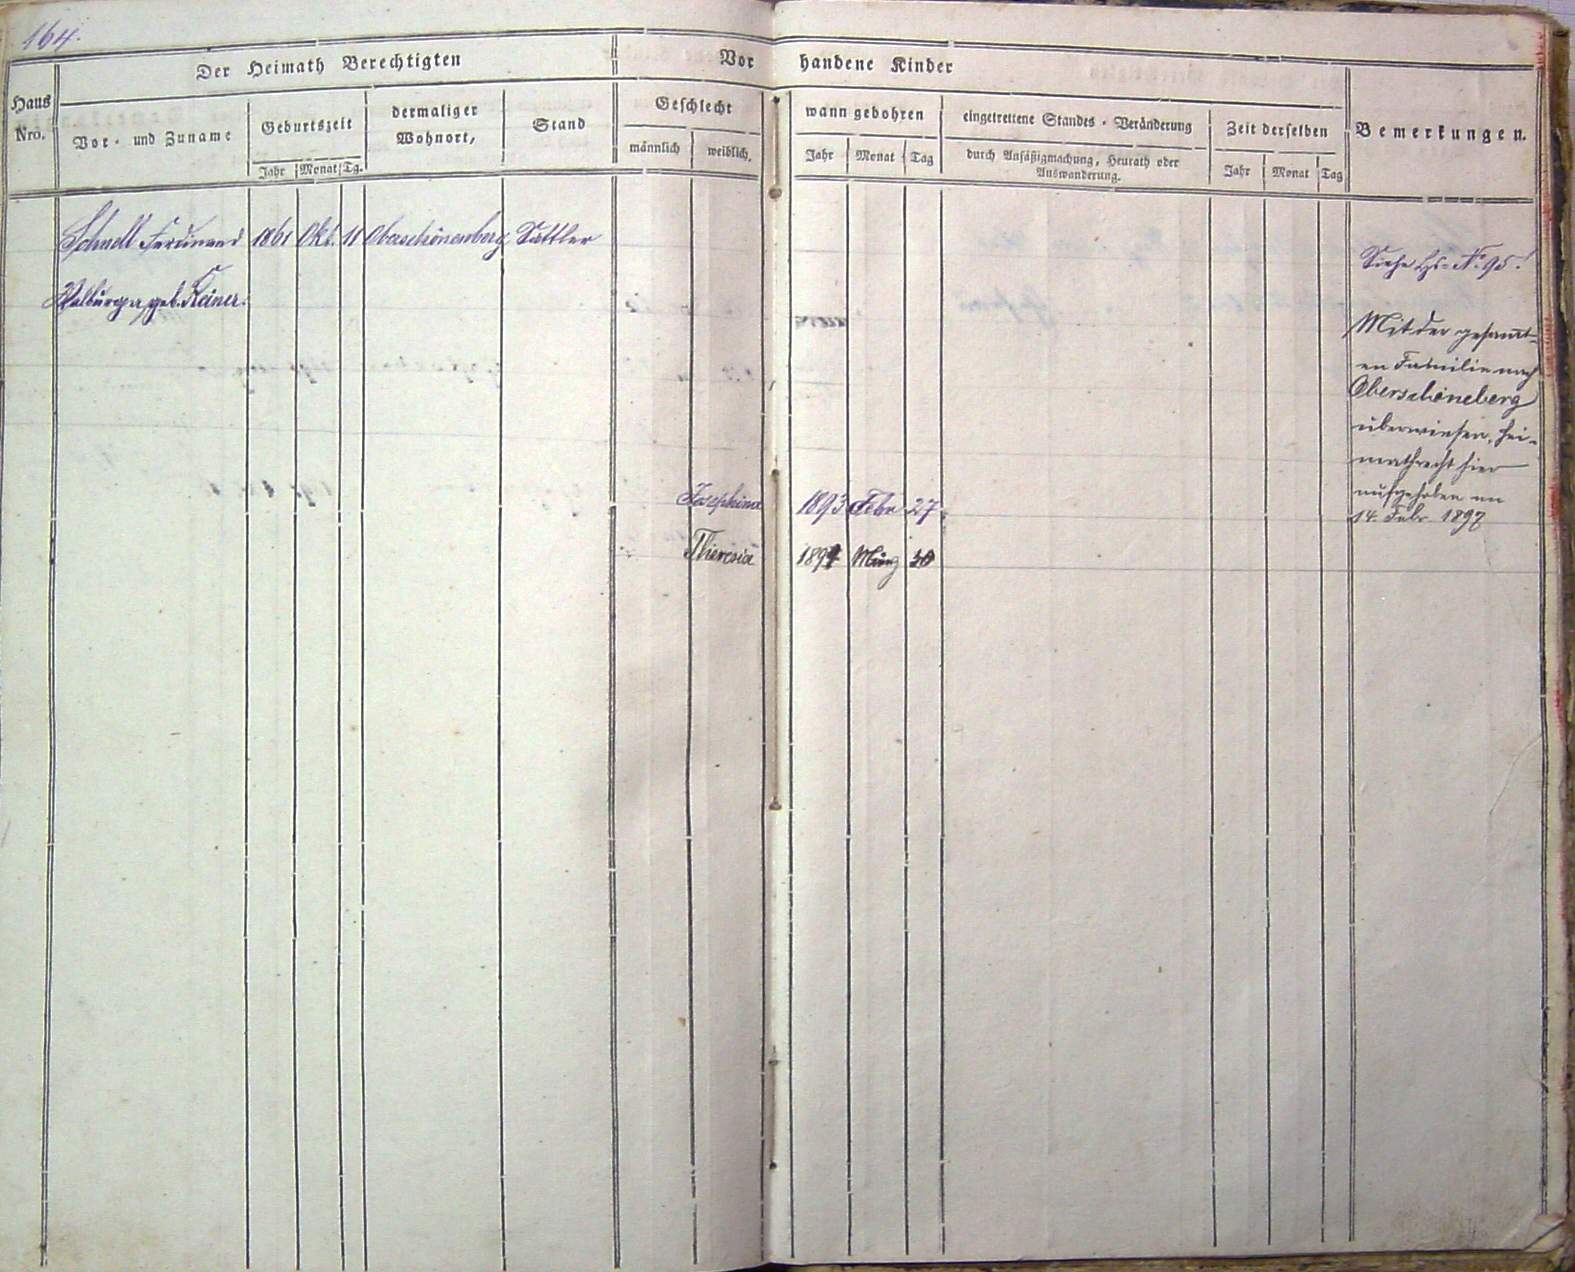 164.
Der Heimath Berechtigten
Vor handene Kinder
Haus Nro.
Vor- und Zuname
Geburtszeit
Jahr Monat Tg.
dermaliger Wohnort,
Stand
Geschlecht
männlich weiblich.
wann gebohren
Jahr Monat Tag
eingetrettene Standes-Veränderung
durch Ansäßigmachung, Heurath oder
Auswanderung.
Zeit derselben
Jahr Monat Tag
Bemerkungen.
Schnell Ferdinand 1861 Okt. 11 Oberschönenberg Sattler
Siehe Hs-No. 95.
Walburga, geb. Keiner.
Mit der gesamt-
en Familie nach
Oberschöneberg
überwiesen, Hei-
mathrecht hier
aufgehoben am
14. Febr. 1897
Josephina 1893 Febr 27
Theresia 1894 März 30